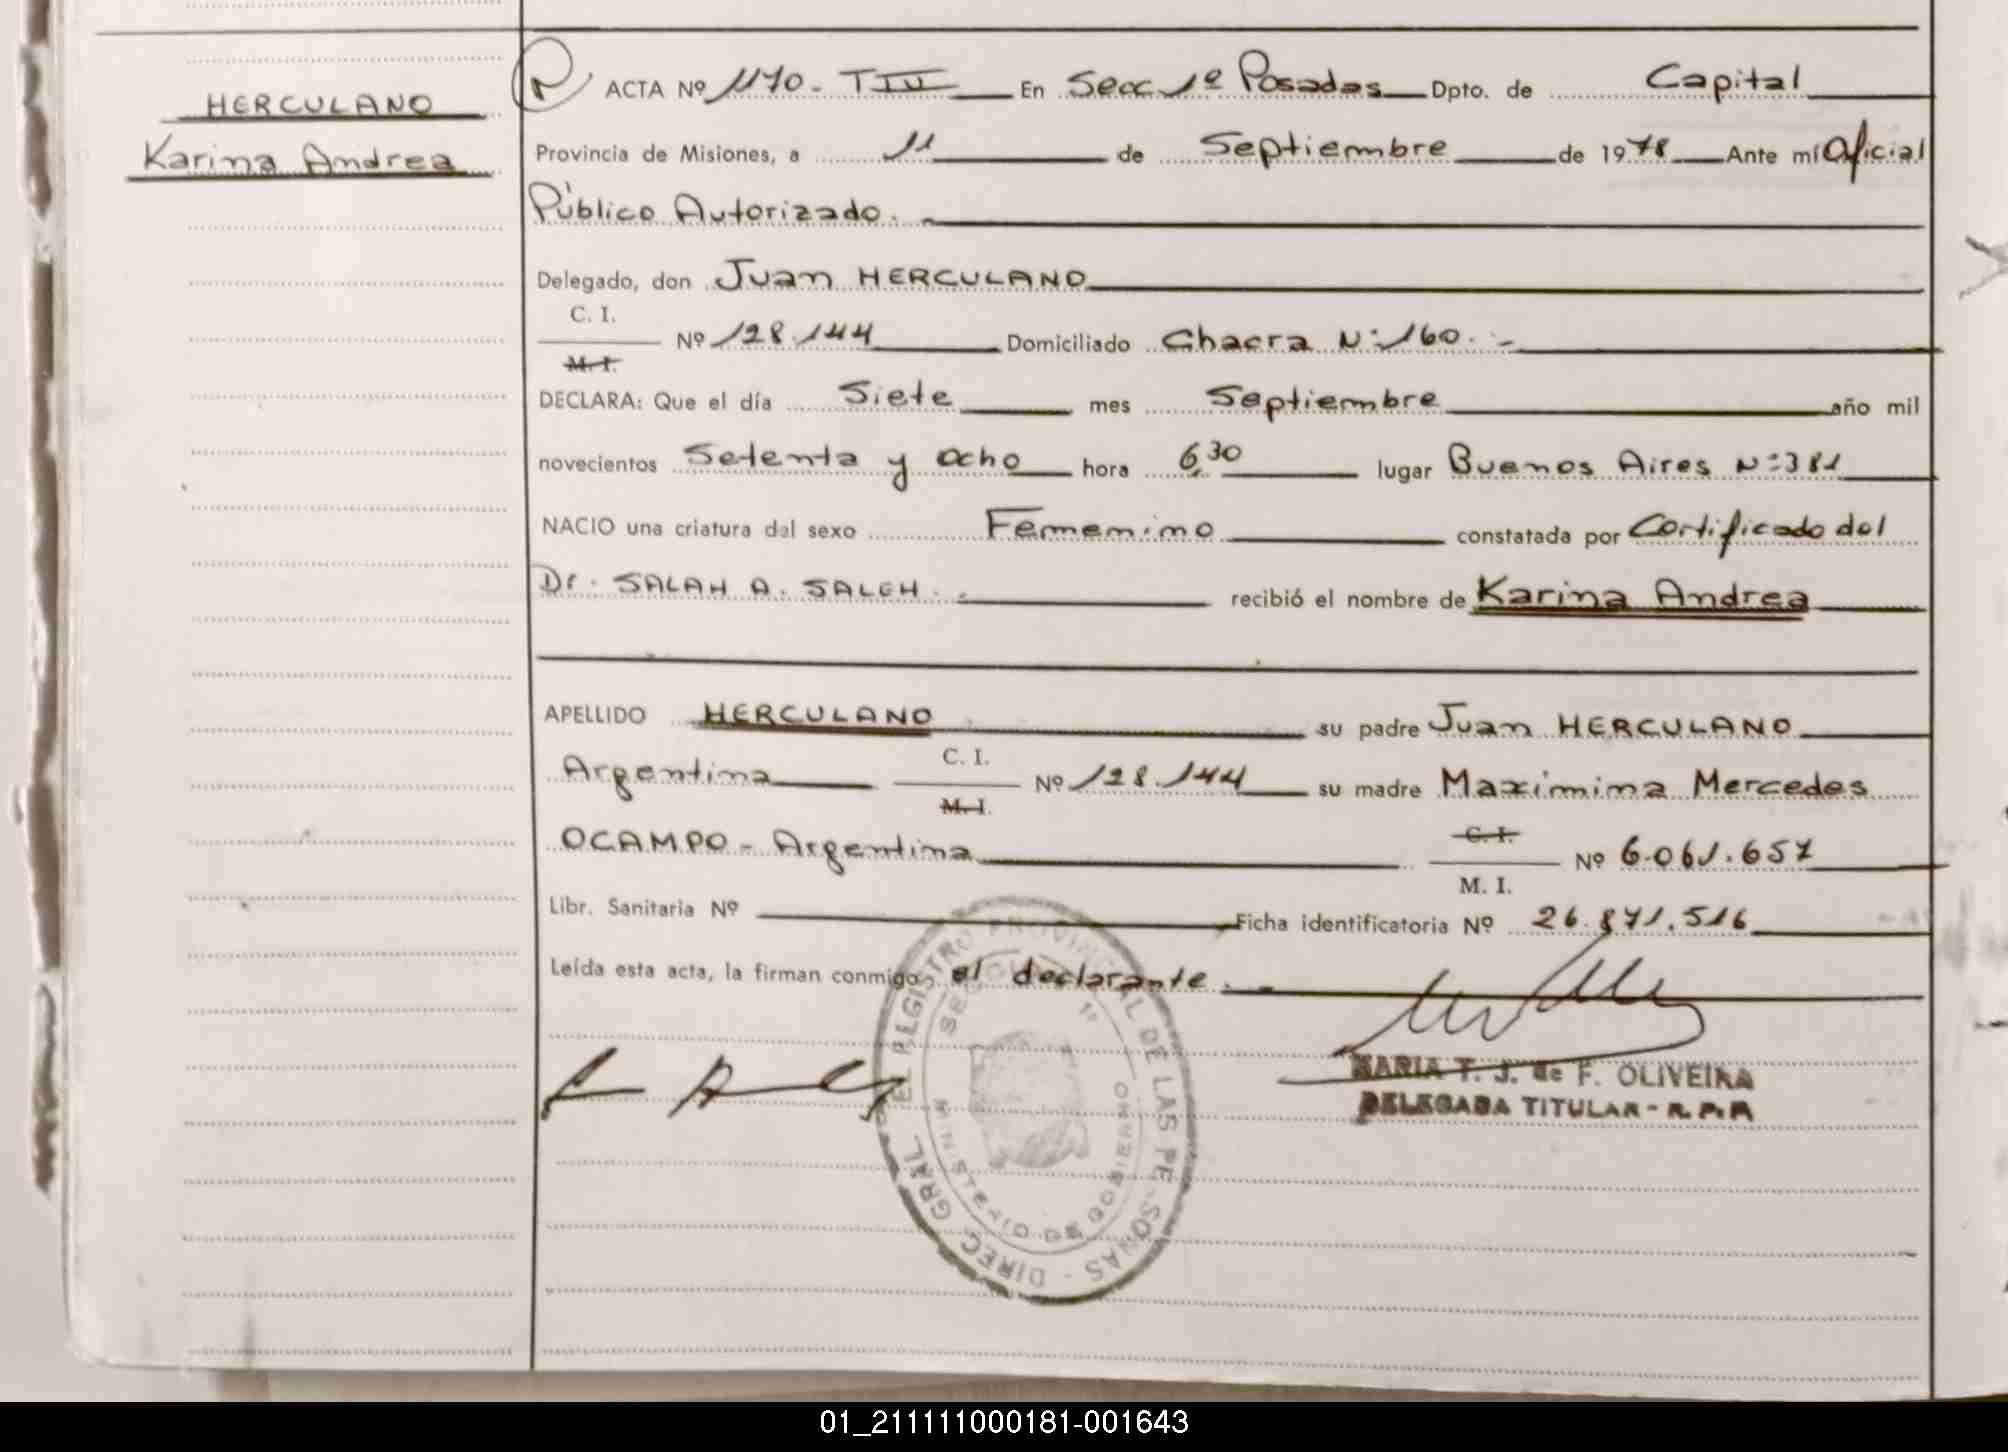 HERCULANO
Karina Andrea
N ACTA Nº 1170 - T III En Secc 1º Posadas Dpto. de Capital
Provincia de Misiones, a 11 de Septiembre de 1978 Ante mí Oficial
Público Autorizado. -
Delegado, don Juan HERCULANO
C. I.
Nº 128.144 Domiciliado Chacra Nº 160. -
M. I.
DECLARA: Que el día Siete mes Septiembre año mil
novecientos Setenta y ocho hora 6,30 lugar Buenos Aires Nº 381
NACIO una criatura del sexo Femenino constatada por Certificado del
Dr. SALAH A. SALEH. - recibió el nombre de Karina Andrea
APELLIDO HERCULANO su padre Juan HERCULANO
C. I.
Argentina Nº 128.144 su madre Maximina Mercedes
M. I.
C. I.
OCAMPO - Argentina Nº 6.061.657
M. I.
Libr. Sanitaria Nº Ficha identificatoria Nº 26.871.516
Leída esta acta, la firman conmigo, el declarante. -
DIREC. GRAL. DEL REGISTRO PROVINCIAL DE LAS PERSONAS -
SECCION 1º
MINISTERIO DE GOBIERNO
MARIA T. J. de F. OLIVEIRA
DELEGADA TITULAR - R. P. P.
01_211111000181-001643